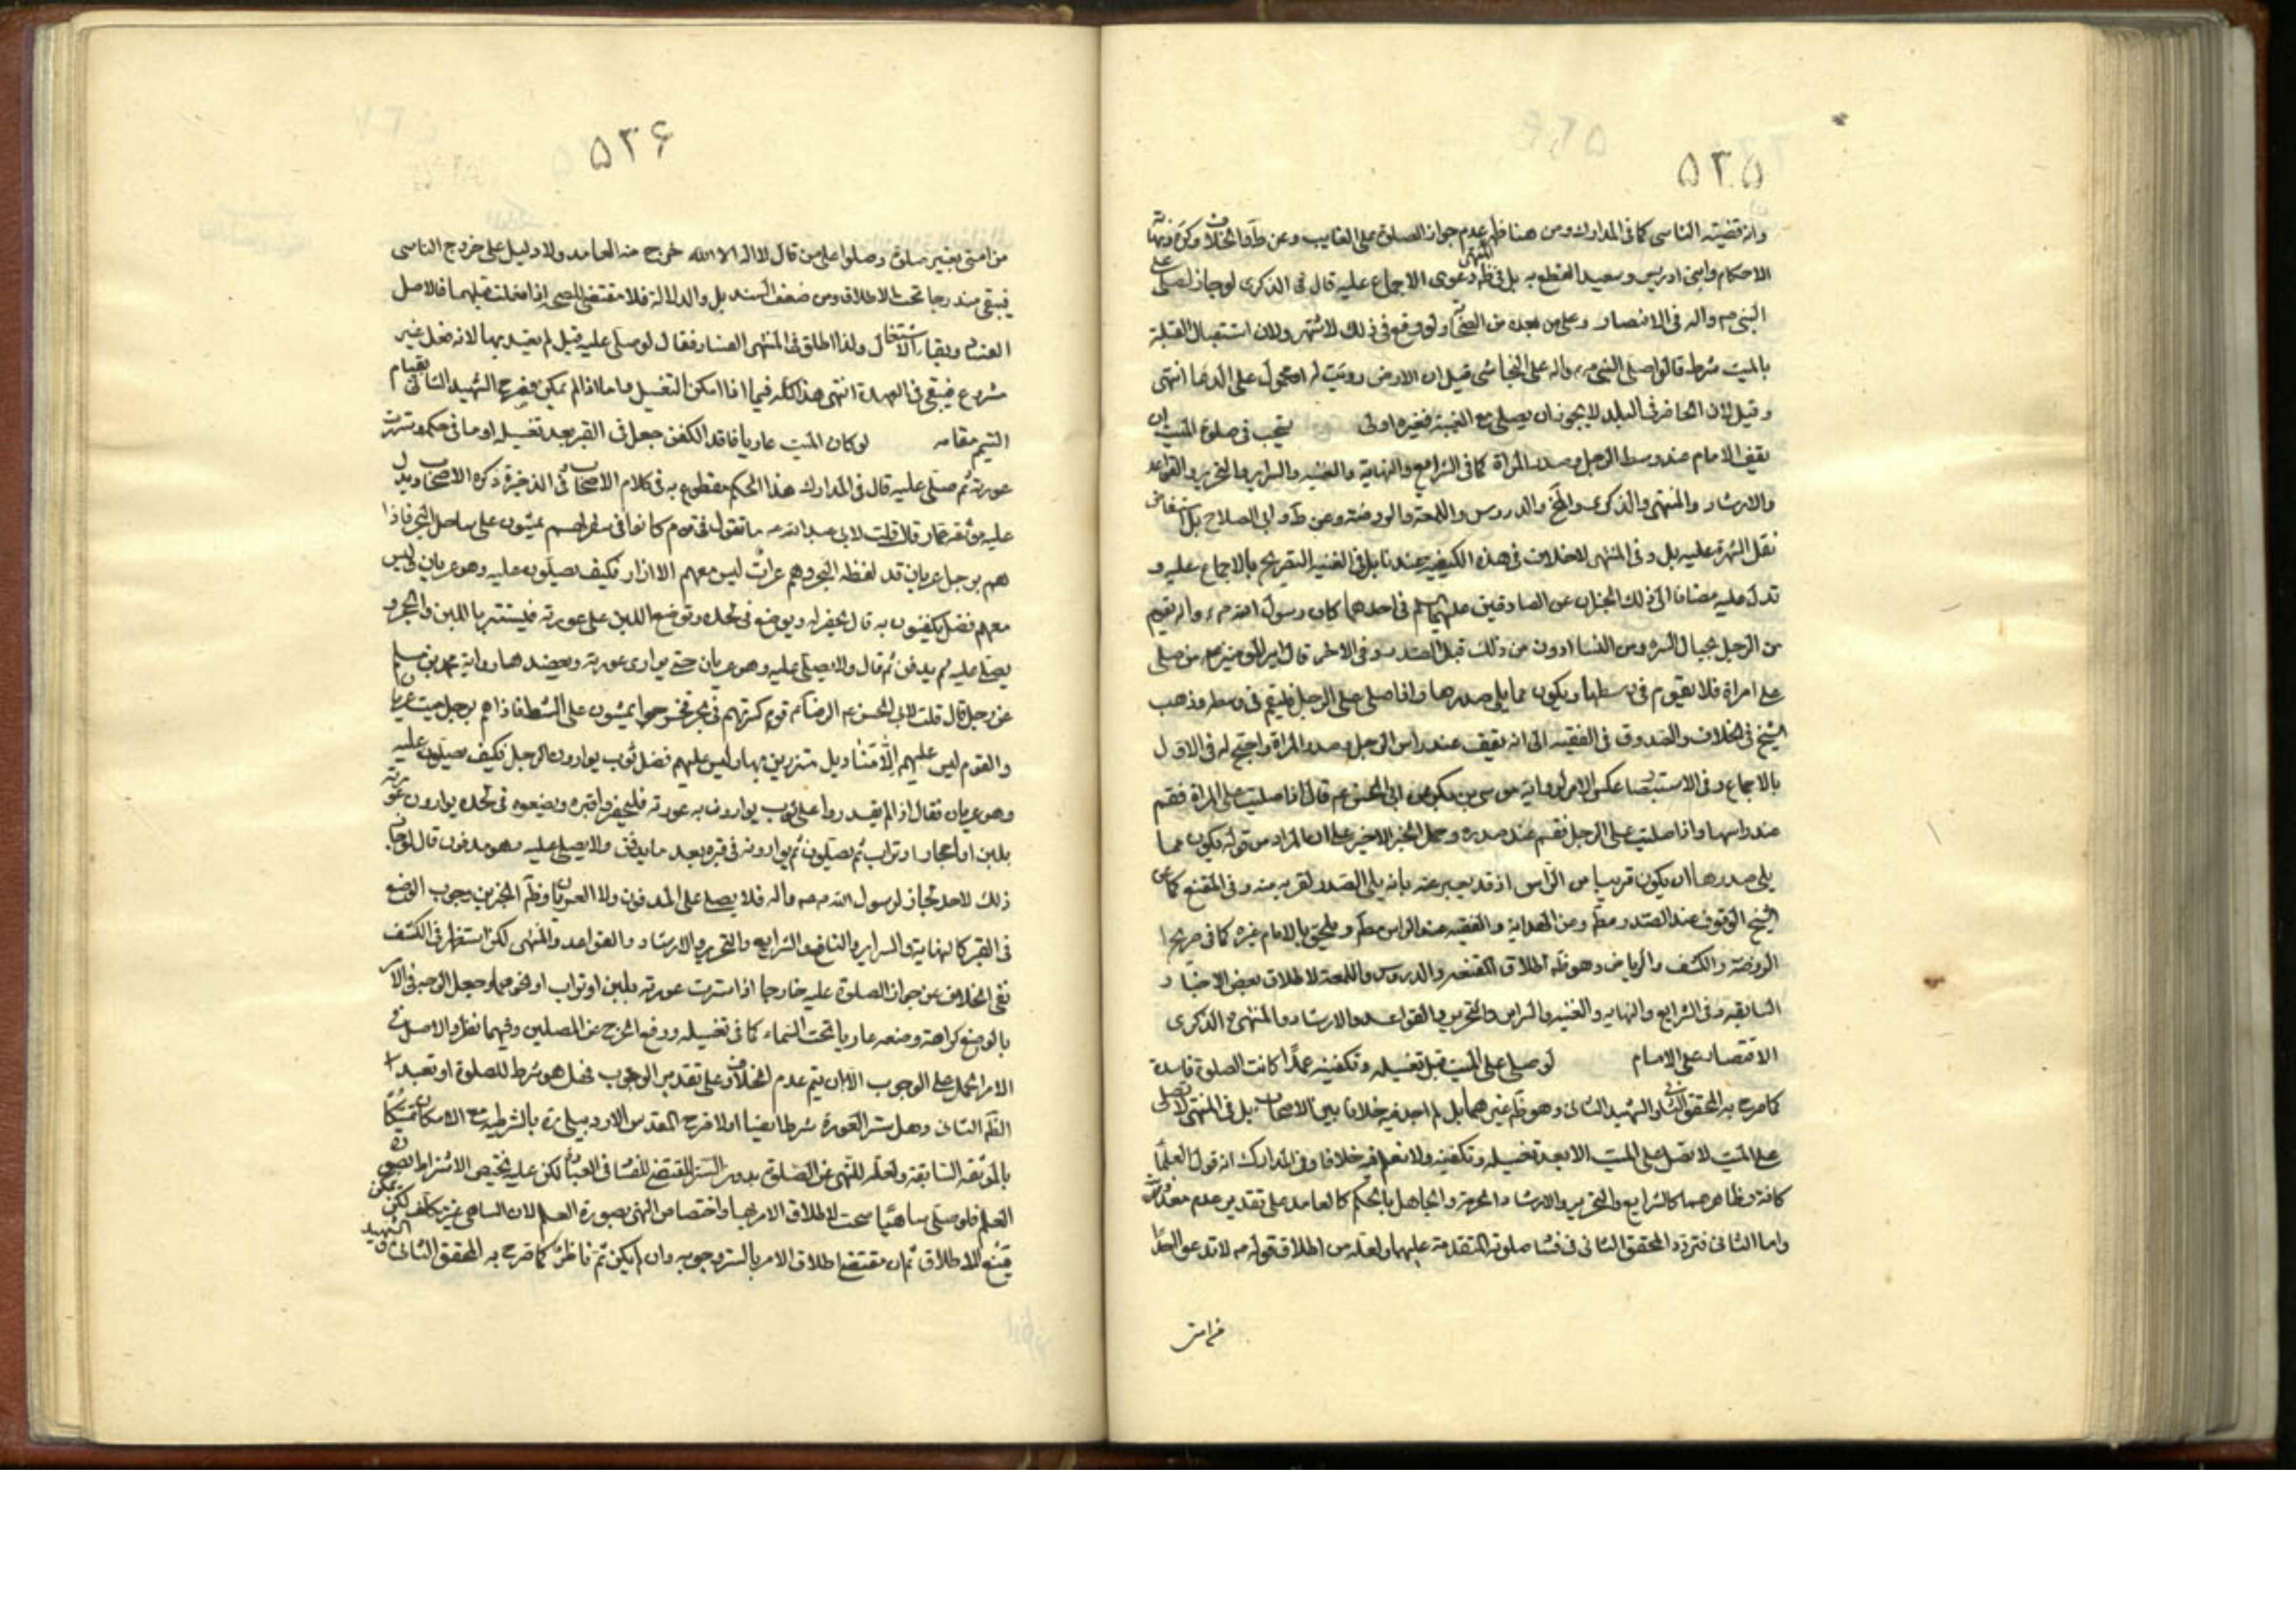 ۵۲۵
وانه قضية الناسى كما فى المدارك ومن هنا ظهر عدم جواز الصلوة على الغايب وعن ط والخلاف وكره ونهاية
الاحكام وابنى ادريس وسعيد القطع به بل فى ظه المنتهى دعوى الاجماع عليه قال فى الذكرى لو جاز لصلى على
النبى ص واله فى الامصار وعلى من بعده من الصحابة ولو وقع فى ذلك لاشتهر ولان استقبال القبلة
بالميت شرط قالوا صلى النبى ص واله على النجاشى قيل ان الارض زويت له او محمول على الدعا انتهى
وقيل لان الحاضر فى البلد لا يجوز ان يصلى مع الغيبة فغيره اولى يستحب فى صلوة الميت ان
يقف الامام عند وسط الرجل وصدر المراة كما فى الشرايع والنهاية والغنيه والسراير والتحرير والقواعد
والارشاد والمنتهى والذكرى والدروس واللمعة والروضة وعن ط وابى الصلاح بل استفاض
نقل الشهرة عليه بل وفى المنتهى لا خلاف فى هذه الكيفية عندنا بل فى الغنيه التصريح بالاجماع عليه و
تدل عليه مضافا الى ذلك الخبران عن الصادقين عليهما السلم فى احدهما كان رسول الله ص واله يقوم
من الرجل بحيال السره ومن النساء ادون من ذلك قبل الصدر وفى الاخر قال امير المؤمنين ع من صلى
على امراة فلا يقوم فى وسطها ويكون مما يلى صدرها واذا صلى على الرجل فليقم فى وسطه وذهب
الشيخ فى الخلاف والصدوق فى الفقيه الى انه يقف عند راس الرجل وصدر المراة واحتج له فى الاول
بالاجماع وفى الاستبصار عكس الامر لرواية موسى بن بكر عن ابى الحسن ع قال اذا صليت على المراة فقم
عند راسها واذا صليت على الرجل فقم عند صدره وحمل الخبر الاخير على ان المراد من قوله يكون مما
يلى صدرها ان يكون قريبا من الراس اذ قد يعبر عنه بانه يلى الصدر لقربه منه وفى المقنع كما عن
الشيخ الوقوف عند الصدر مطم ومن الهداية والفقيه عند الراس مطم ويلحق بالامام غيره كما فى صريح
الروضة والكشف والرياض وهو ظه اطلاق المقنعه والدروس واللمعة لاطلاق بعض الاخبار
السابقه وفى الشرايع والنهايه والغنيه والسراير والتحرير والقواعد والارشاد والمنتهى والذكرى
الاقتصار على الامام لو صلى على الميت قبل تغسيله وتكفينه عمدا كانت الصلوة فاسدة
كما صرح به المحقق الثانى والشهيد الثانى وهو ظه غيرهما بل لم اجد فيه خلافا بين الاصحاب بل فى المنتهى لا يصلى
على الميت الا بعد تغسيله وتكفينه ولا نعلم فيه خلافا وفى المدارك انه قول العلماء
كافة وظاهرهما كالشرايع والتحرير والارشاد الحرمة والجاهل بالحكم كالعامد على تقدير عدم معذوريته
واما الثانى فتردد المحقق الثانى فى فساد صلوته المتقدمة عليهما ولعله من اطلاق قوله ص لا تدعوا احدا
من امتى
۵۲۶
من امتى بغير صلوة وصلوا على من قال لا اله الا الله خرج منه العامد ولا دليل على خروج الناسى
فيبقى مندرجا تحت الاطلاق ومن ضعف السند بل والدلالة فلا مقتضى للصحه اذا فعلت قبلهما فالاصل
الفساد وبقاء الاشتغال ولذا اطلق فى المنتهى الفساد فقال لو صلى عليه قبل لم يعتد بها لانه فعل غير
مشروع فيبقى فى العهدة انتهى هذا كله فيما اذا امكن التغسيل واما اذا لم يمكن فصرح الشهيد الثانى بقيام
التيمم مقامه لو كان الميت عاريا فاقد الكفن جعل فى القبر بعد تغسيله او ما فى حكمه وسترت
عورته ثم صلى عليه قال فى المدارك هذا الحكم مقطوع به فى كلام الاصحاب فى الذخيرة ذكره الاصحاب ويدل
عليه موثقه عمار قال قلت لابى عبد الله ع ما تقول فى قوم كانوا فى سفر لهم يمشون على ساحل البحر فاذا
هم برجل عريان قد لفظه البحر وهم عراة ليس معهم الا ازار فكيف يصلون عليه وهو عريان ليس
معهم فضل يكفنون به قال يحفر له ويوضع فى لحده ويوضع اللبن على عورته فيستتر باللبن والحجر و
يصلى عليه ثم يدفن ثم قال ولا يصلى عليه وهو عريان حتى يوارى عورته ويعضدها رواية محمد بن مسلم
عن رجل قال قلت لابى الحسن ع الرضا ع قوم كسر بهم فى بحر فخرجوا يمشون على الشط فاذا هم برجل ميت عريان
والقوم ليس عليهم الا مناديل متزرين بها وليس عليهم فضل ثوب يوارون الرجل فكيف يصلون عليه
وهو عريان فقال اذا لم يقدروا على ثوب يوارون به عورته فليحفروا قبره ويضعوه فى لحده يوارون عورته
بلبن او احجار او تراب ثم يصلون ثم يوارونه فى قبره بعد ما يدفن ولا يصلى عليه وهو مدفون قال لو جاز
ذلك لاحد لجاز لرسول الله ص واله فلا يصلى على المدفون ولا العريان وظه الخبرين وجوب الوضع
فى القبر كالنهاية والسراير والنافع والشرايع والتحرير والارشاد والقواعد والمنتهى لكن استظهر فى الكشف
نفى الخلاف عن جواز الصلوة عليه خارجا اذا سترت عورته بلبن او تراب او نحوهما وجعل الوجه فى الامر
بالوضع كراهة وضعه عاريا تحت السماء كما فى تغسيله ورفع الحرج عن المصلين وفيهما نظر والاصل فى
الامر الحمل على الوجوب الا ان يتم عدم الخلاف وعلى تقدير الوجوب فهل هو شرط للصلوة او تعبد
الظه الثانى وهل ستر العورة شرط ايضا ام لا صرح المقدس الاردبيلى ره بالشرطيه مع الامكان تمسكا
بالموثقه السابقة ولعله للنهى عن الصلوة بدون الستر المقتضى للفساد فى العبادة لكن عليه يختص الاشتراط بصورة
العلم فلو صلى ساهيا صحت لاطلاق الامر بها واختصاص النهى بصورة العلم لان الساهى غير مكلف لكن يمكن
منع الاطلاق ثم ان مقتضى اطلاق الامر بالستر وجوبه وان لم يكن ثم ناظر كما صرح به المحقق الثانى والشهيد